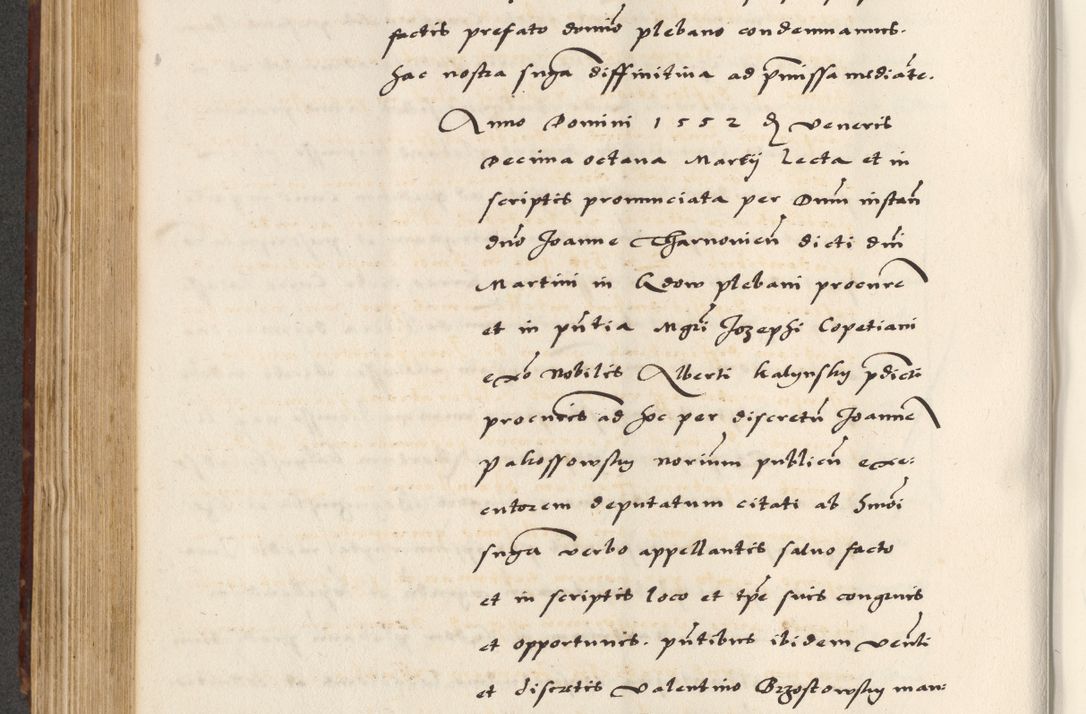 factis prefato domīo plebano condemnamus.
hac nostra snīa diffinitiua ad p̄missa mediāte.
Anno Domini 1552 d Veneris
Decima octaua Martij lecta et in
scriptis pronunciata per Dnūm instan̄
dnō Joanne Tharnouien̄ dicti dnī
Martini in Gdow plebani procurē
et in pn̄tia Mgr̄i Jozephi Copetiani
exō Nobilis Alberti kalynsky p̄dicti
procuris ad hoc per discretū Joannē
Pakossowsky norium publicū exe:
cutorem deputatum citati ab hmōi
snīa verbo appellantis saluo facto
et in scriptis loco et tpē suis congruis
et opportunis. pn̄tibus ibidem Ven̄ti
et discretis Valentino Brzostowsky man: